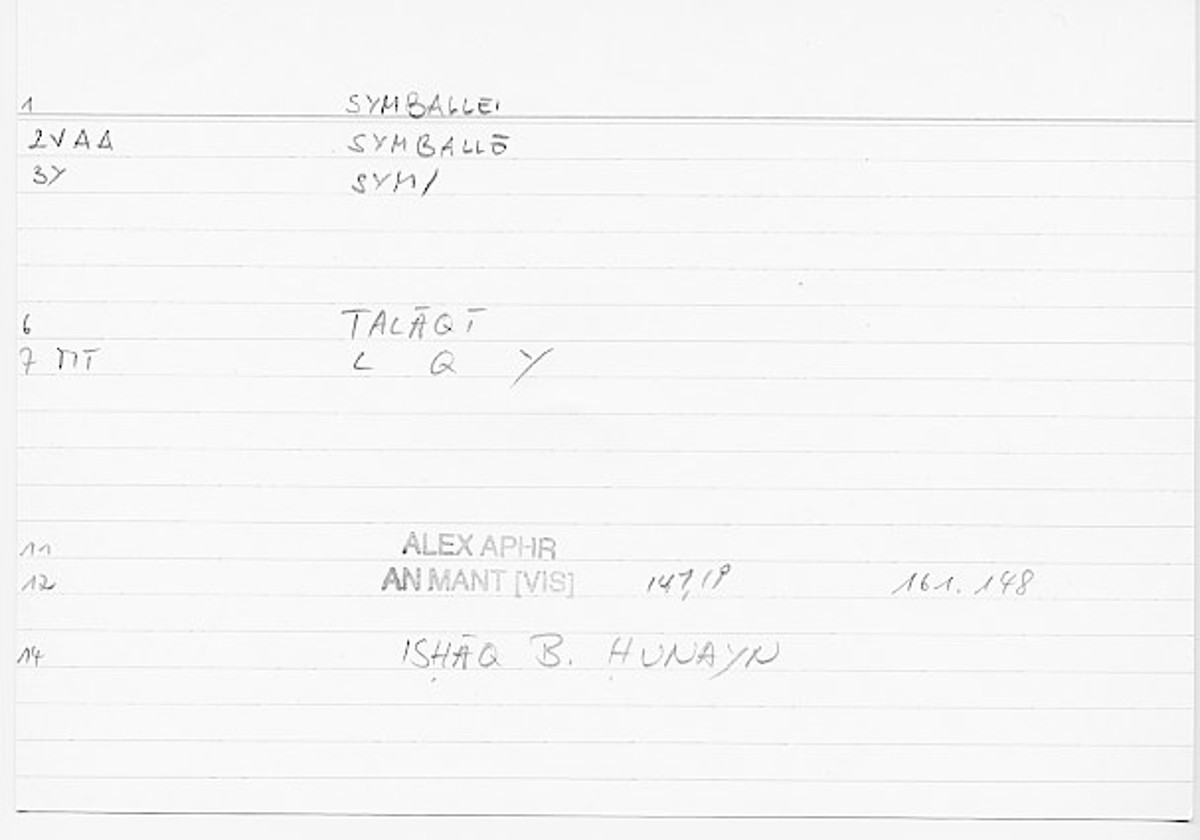 1 SYMBALLEI
2VAA SYMBALLŌ
3Y SYM/
6 TALĀQĪ
7 MT L Q Y
11 ALEX APHR
12 AN MANT [VIS] 147,18 161.148
14 ISḤĀQ B. ḤUNAYN